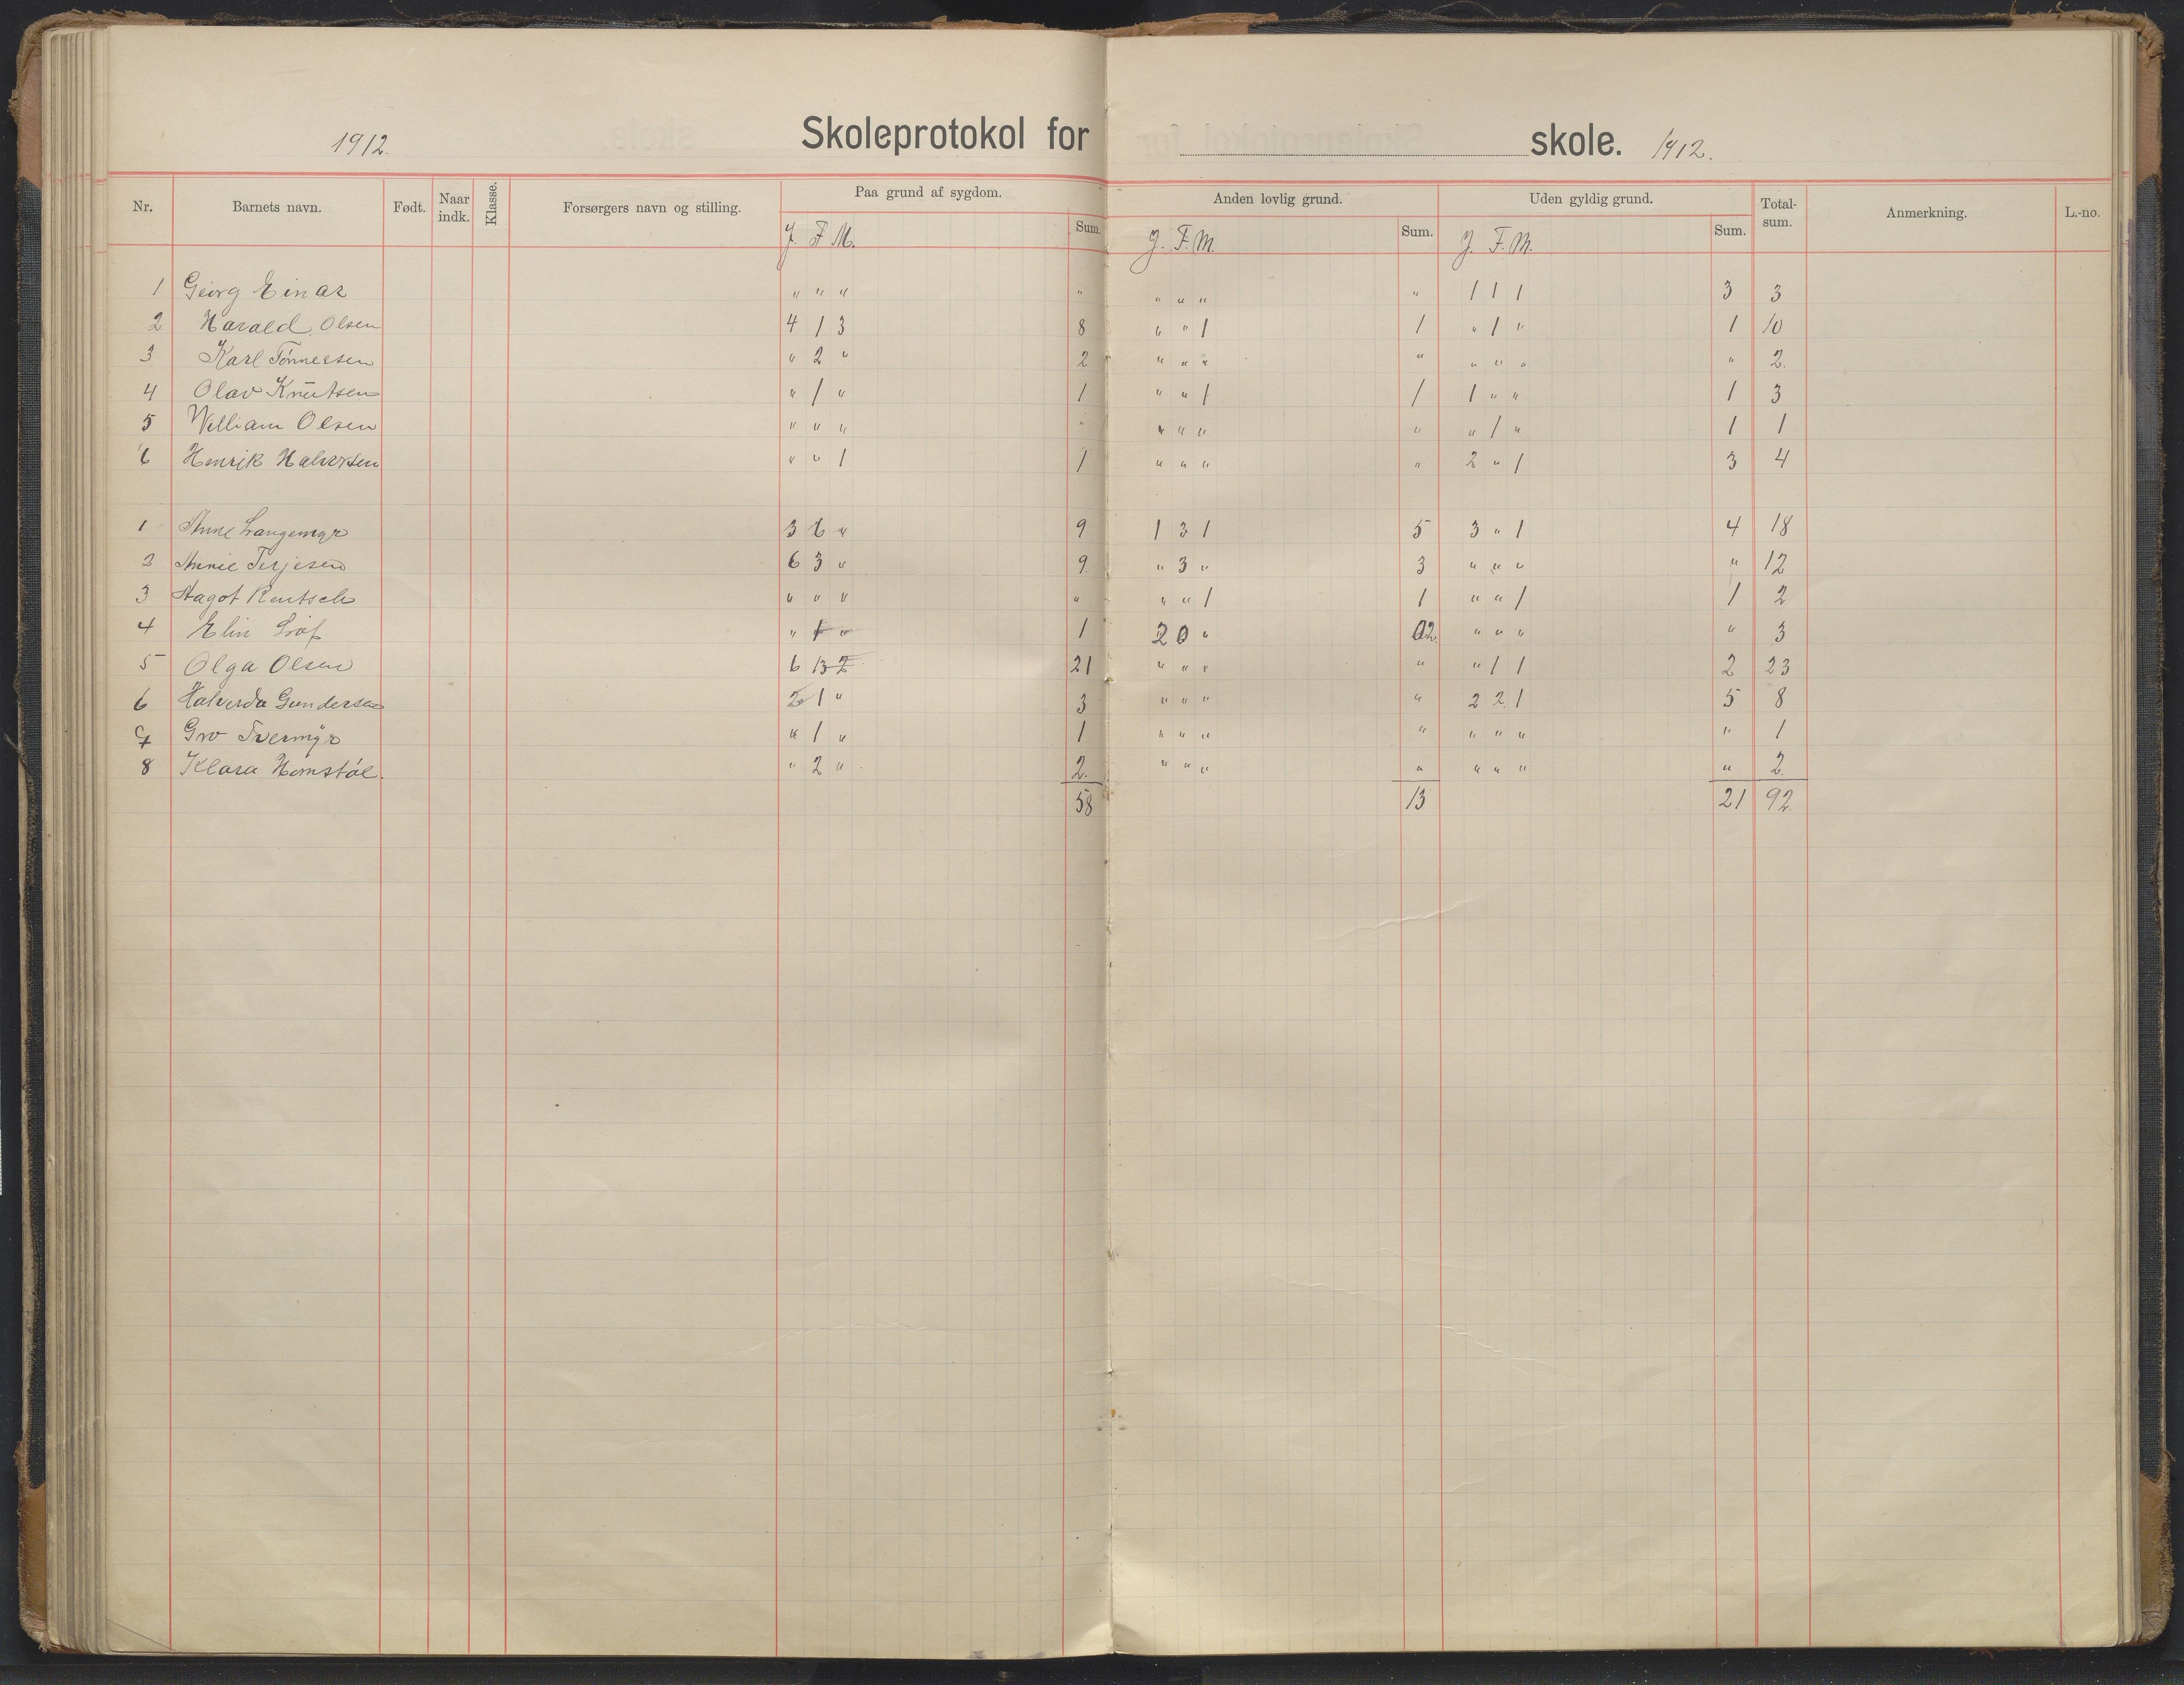 1912. Skoleprotokol for skole. 1912.
Nr. Barnets navn. Født. Naar indk. Klasse. Forsørgers navn og stilling. Paa grund af sygdom. Sum. Anden lovlig grund. Sum. Uden gyldig grund. Sum. Total-sum. Anmerkning. L.-no.
J. F. M. J. F. M. J. F. M.
1 Georg Einar " " " " " " " " 1 1 1 3 3
2 Harald Olsen 4 1 3 8 " " 1 1 " 1 " 1 10
3 Karl Tønnessen " 2 " 2 " " " " " " " " 2.
4 Olav Knutsen " 1 " 1 " " 1 1 1 " " 1 3
5 William Olsen " " " " " " " " " 1 " 1 1
6 Henrik Halvorsen " " 1 1 " " " " 2 " 1 3 4
1 Anne Langemyr 3 6 " 9 1 3 1 5 3 " 1 4 18
2 Annie Terjesen 6 3 " 9. " 3 " 3 " " " " 12
3 Aagot Rentsch " " " " " " 1 1 " " 1 1 2
4 Elin " 1 " 1 2 0 " 02. " " " " 3
5 Olga Olsen 6 13 2 21 " " " " " 1 1 2 23
6 Halverda Gundersen 2 1 " 3 " " " " 2 2. 1 5 8
7 Gro Tvermyr " 1 " 1 " " " " " " " " 1
8 Klara Homstøl. " 2 " 2. " " " " " " " " 2
58 13 21 92.